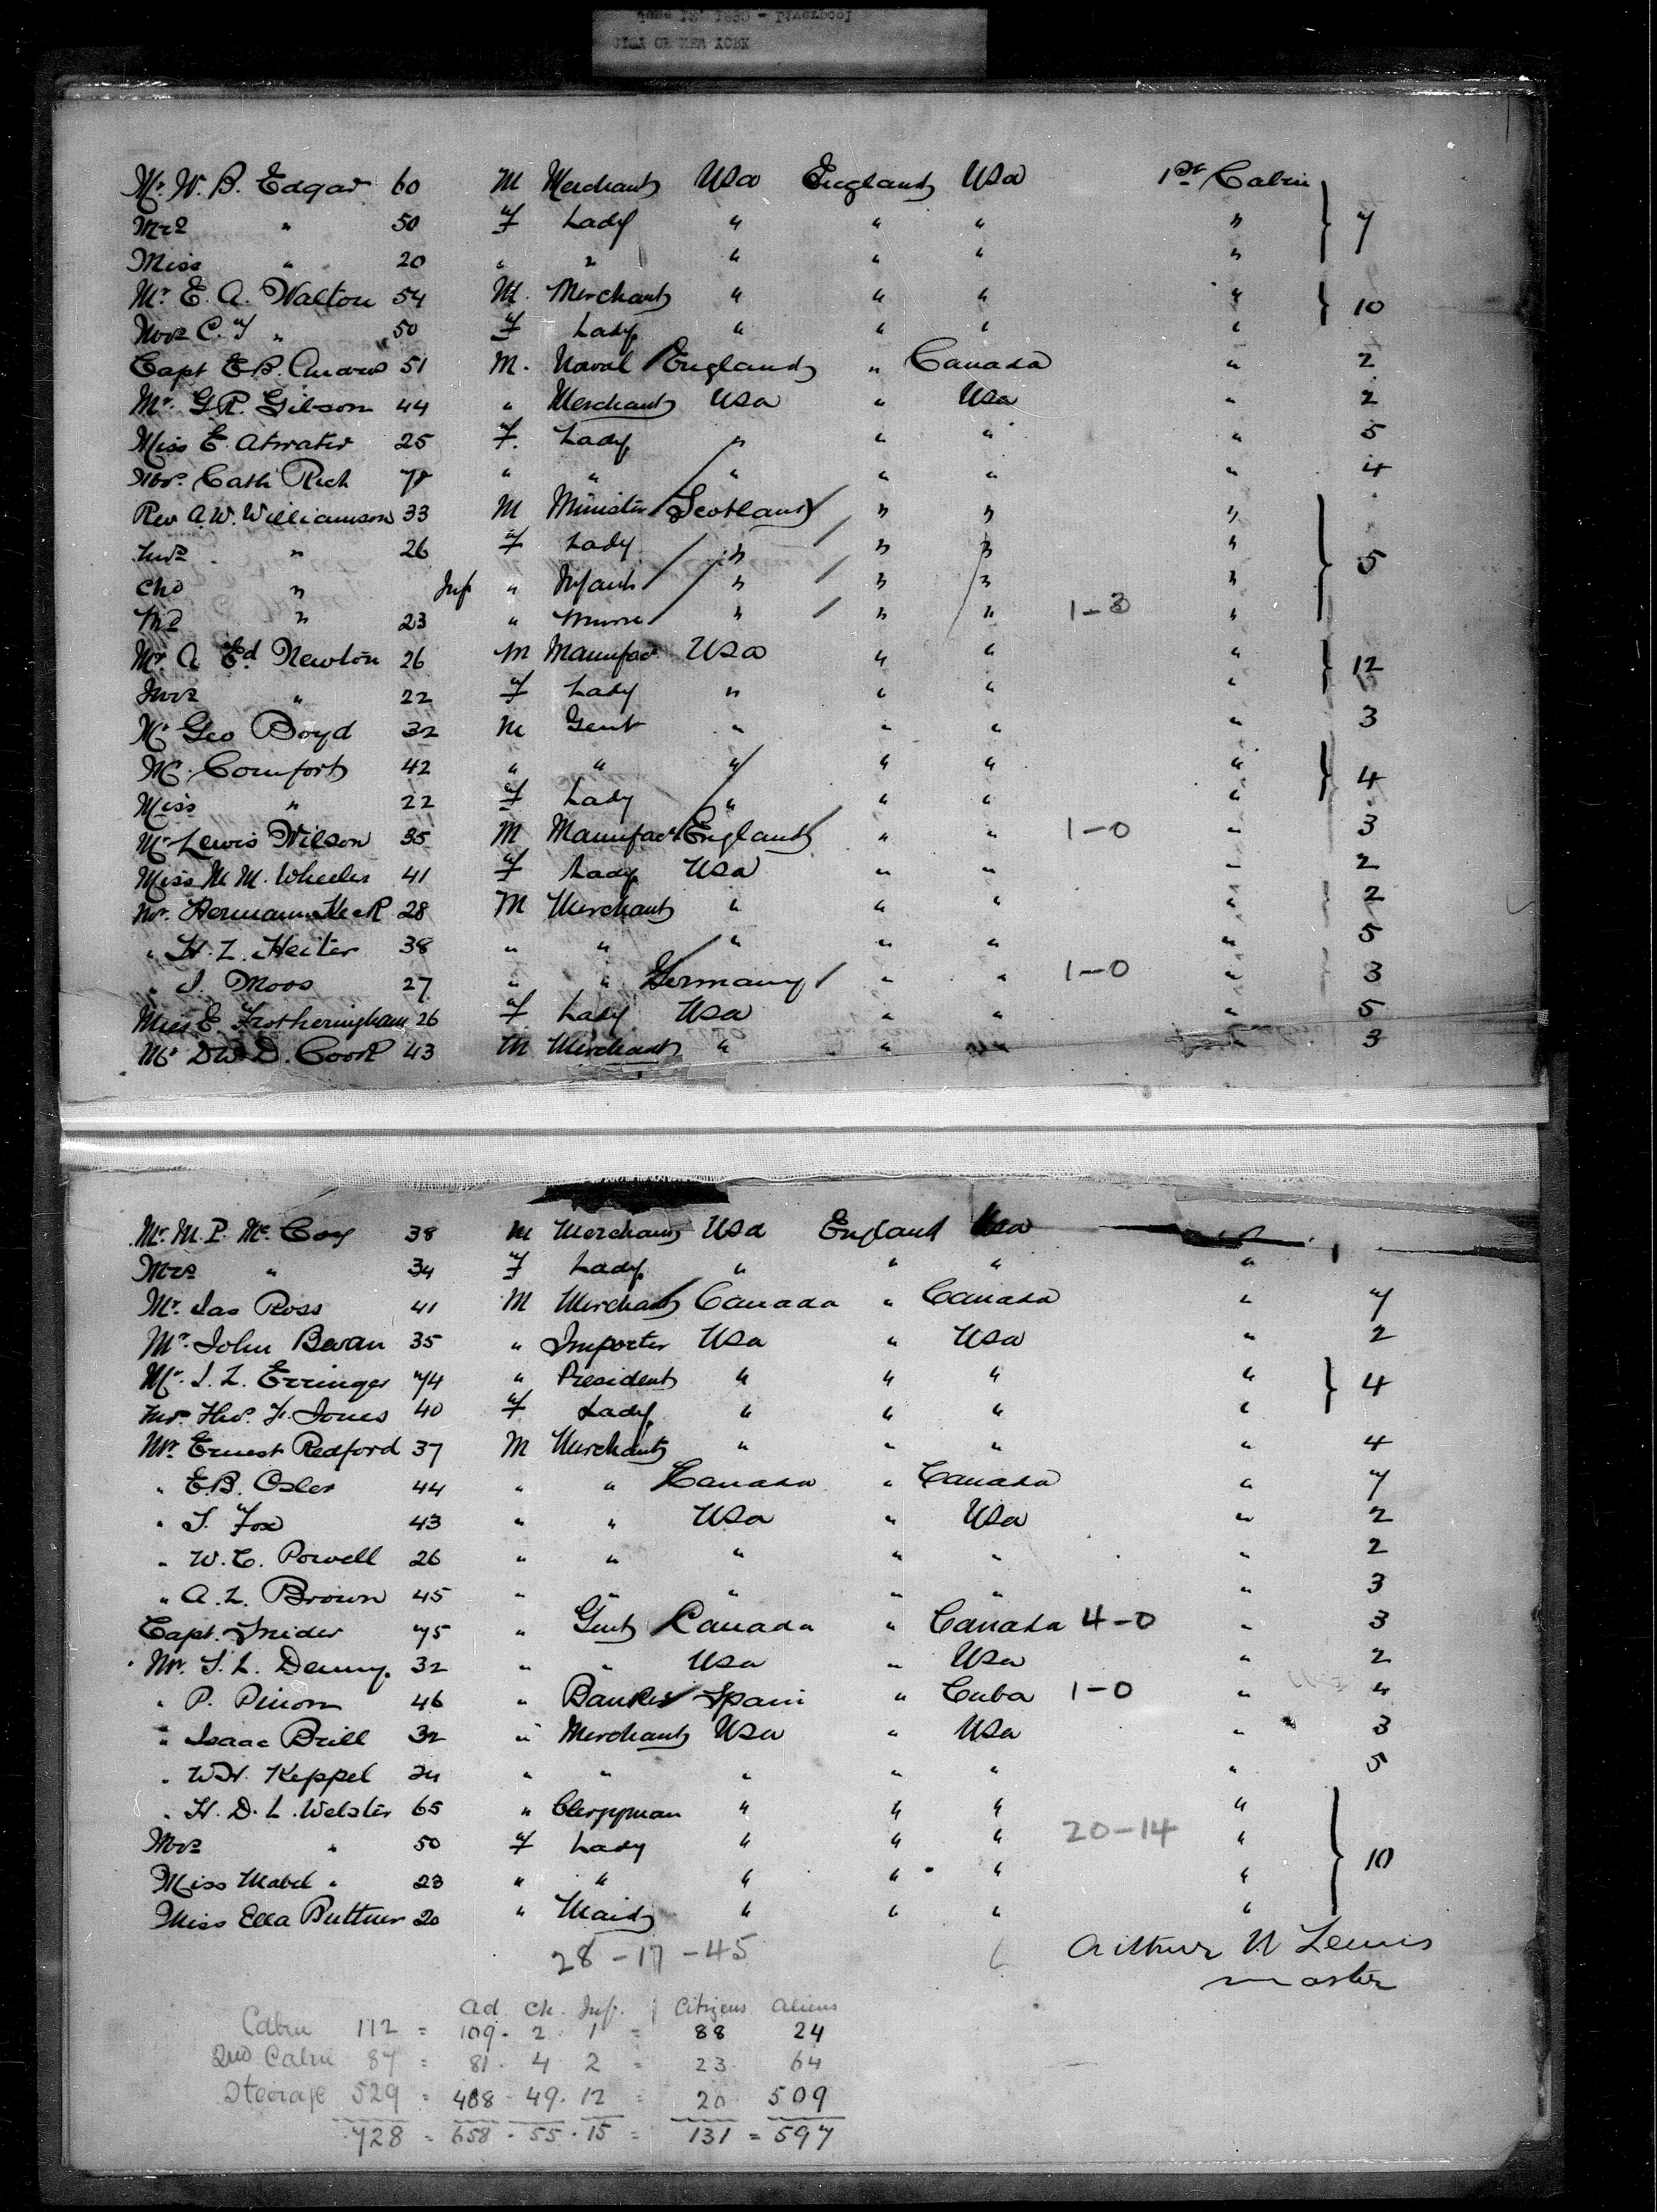 June 18, 1890 - Liverpool
CITY OF NEW YORK
Mr. W. B. Edgar 60 M Merchant USa England USa 1st Cabin
Mrs " 50 F Lady " " " " } 7
Miss " 20 " " " " " "
Mr. E. A. Walton 54 M. Merchant " " " " } 10
Mrs C. F " 50 F Lady " " " "
Capt E. B. 51 M. Naval England " Canada " 2
Mr. G. R. Gibson 44 " Merchant USa " USa " 2
Miss E. Atwater 25 F. Lady " " " " 5
Mrs. Cath Rich " " " " " " 4
Rev A. W. Williamson 33 M Minister Scotland " " "
Mrs. " 26 F Lady " " " " } 5
Chd " Inf " Infant " " " "
" 23 " Nurse " " " 1-3 "
Mr A Ed. Newton 26 M Manufac. USa " " " } 12
Mrs " 22 F Lady " " " "
Mr Geo Boyd 32 M Gent " " " " 3
Mr. Comfort 42 " " " " " " } 4
Miss " 22 F Lady " " " "
Mr Lewis Wilson 35 M Manufac England " " 1-0 " 3
Miss M M. Wheeler 41 F Lady USa " " " 2
Mr. Hermann Keck 28 M Merchant " " " " 2
" H. L. Heiter 38 " " " " " " 5
" J. Moos 27 " " Germany " " 1-0 " 3
Miss E. Frotheringham 26 F Lady USa " " " 5
Mr D. Cook 43 M Merchant " " " 3
Mr. M. P. Mc. Coy 38 M Merchant USa England USa "
Mrs " 34 F Lady " " " "
Mr. Jas Ross 41 M Merchant Canada " Canada " 7
Mr. John Bevan 35 " Importer USa " USa " 2
Mr. J. L. Erringer 74 " President " " " " } 4
Mrs. Thos. F. Jones 40 F Lady " " " "
Mr. Ernest Redford 37 M Merchant " " " " 4
" E. B. Osler 44 " " Canada " Canada " 7
" J. Fox 43 " " USa " USa " 2
" W. C. Powell 26 " " " " " " 2
" A. L. Brown 45 " " " " " " 3
Capt. Snider 75 " Gent Canada " Canada 4-0 " 3
Mr. J. L. Denny. 32 " " USa " USa " 2
" P. Pinon 46 " Banker Spain " Cuba 1-0 " 4
" Isaac Brill 32 " Merchant USa " USa " 3
" W. H. Keppel 24 " " " " " " 5
" H. D. L. Webster 65 " Clergyman " " " "
Mrs " 50 F Lady " " " 20-14 " } 10
Miss Mabel " 23 " " " " " "
Miss Ella Buttner 20 " Maid " " " "
28-17-45
Arthur W Lewis
master
Ad. Ch. Inf. Citizens Aliens
Cabin 112 = 109. 2. 1 = 88 24
2nd Cabin 87 = 81. 4 2 = 23 64
Steerage 529 = 468. 49. 12 = 20 509
728 = 658. 55. 15 = 131 = 597